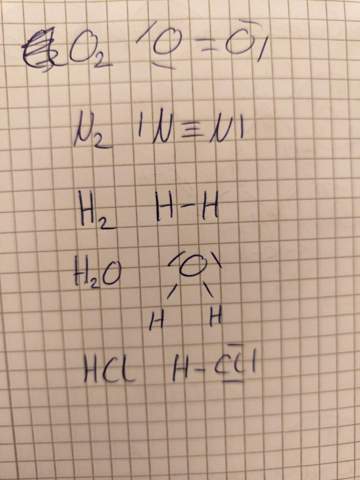 O₂ |O=O|
N₂ |N≡N|
H₂ H-H
H₂O O
H H
HCl H-Cl|